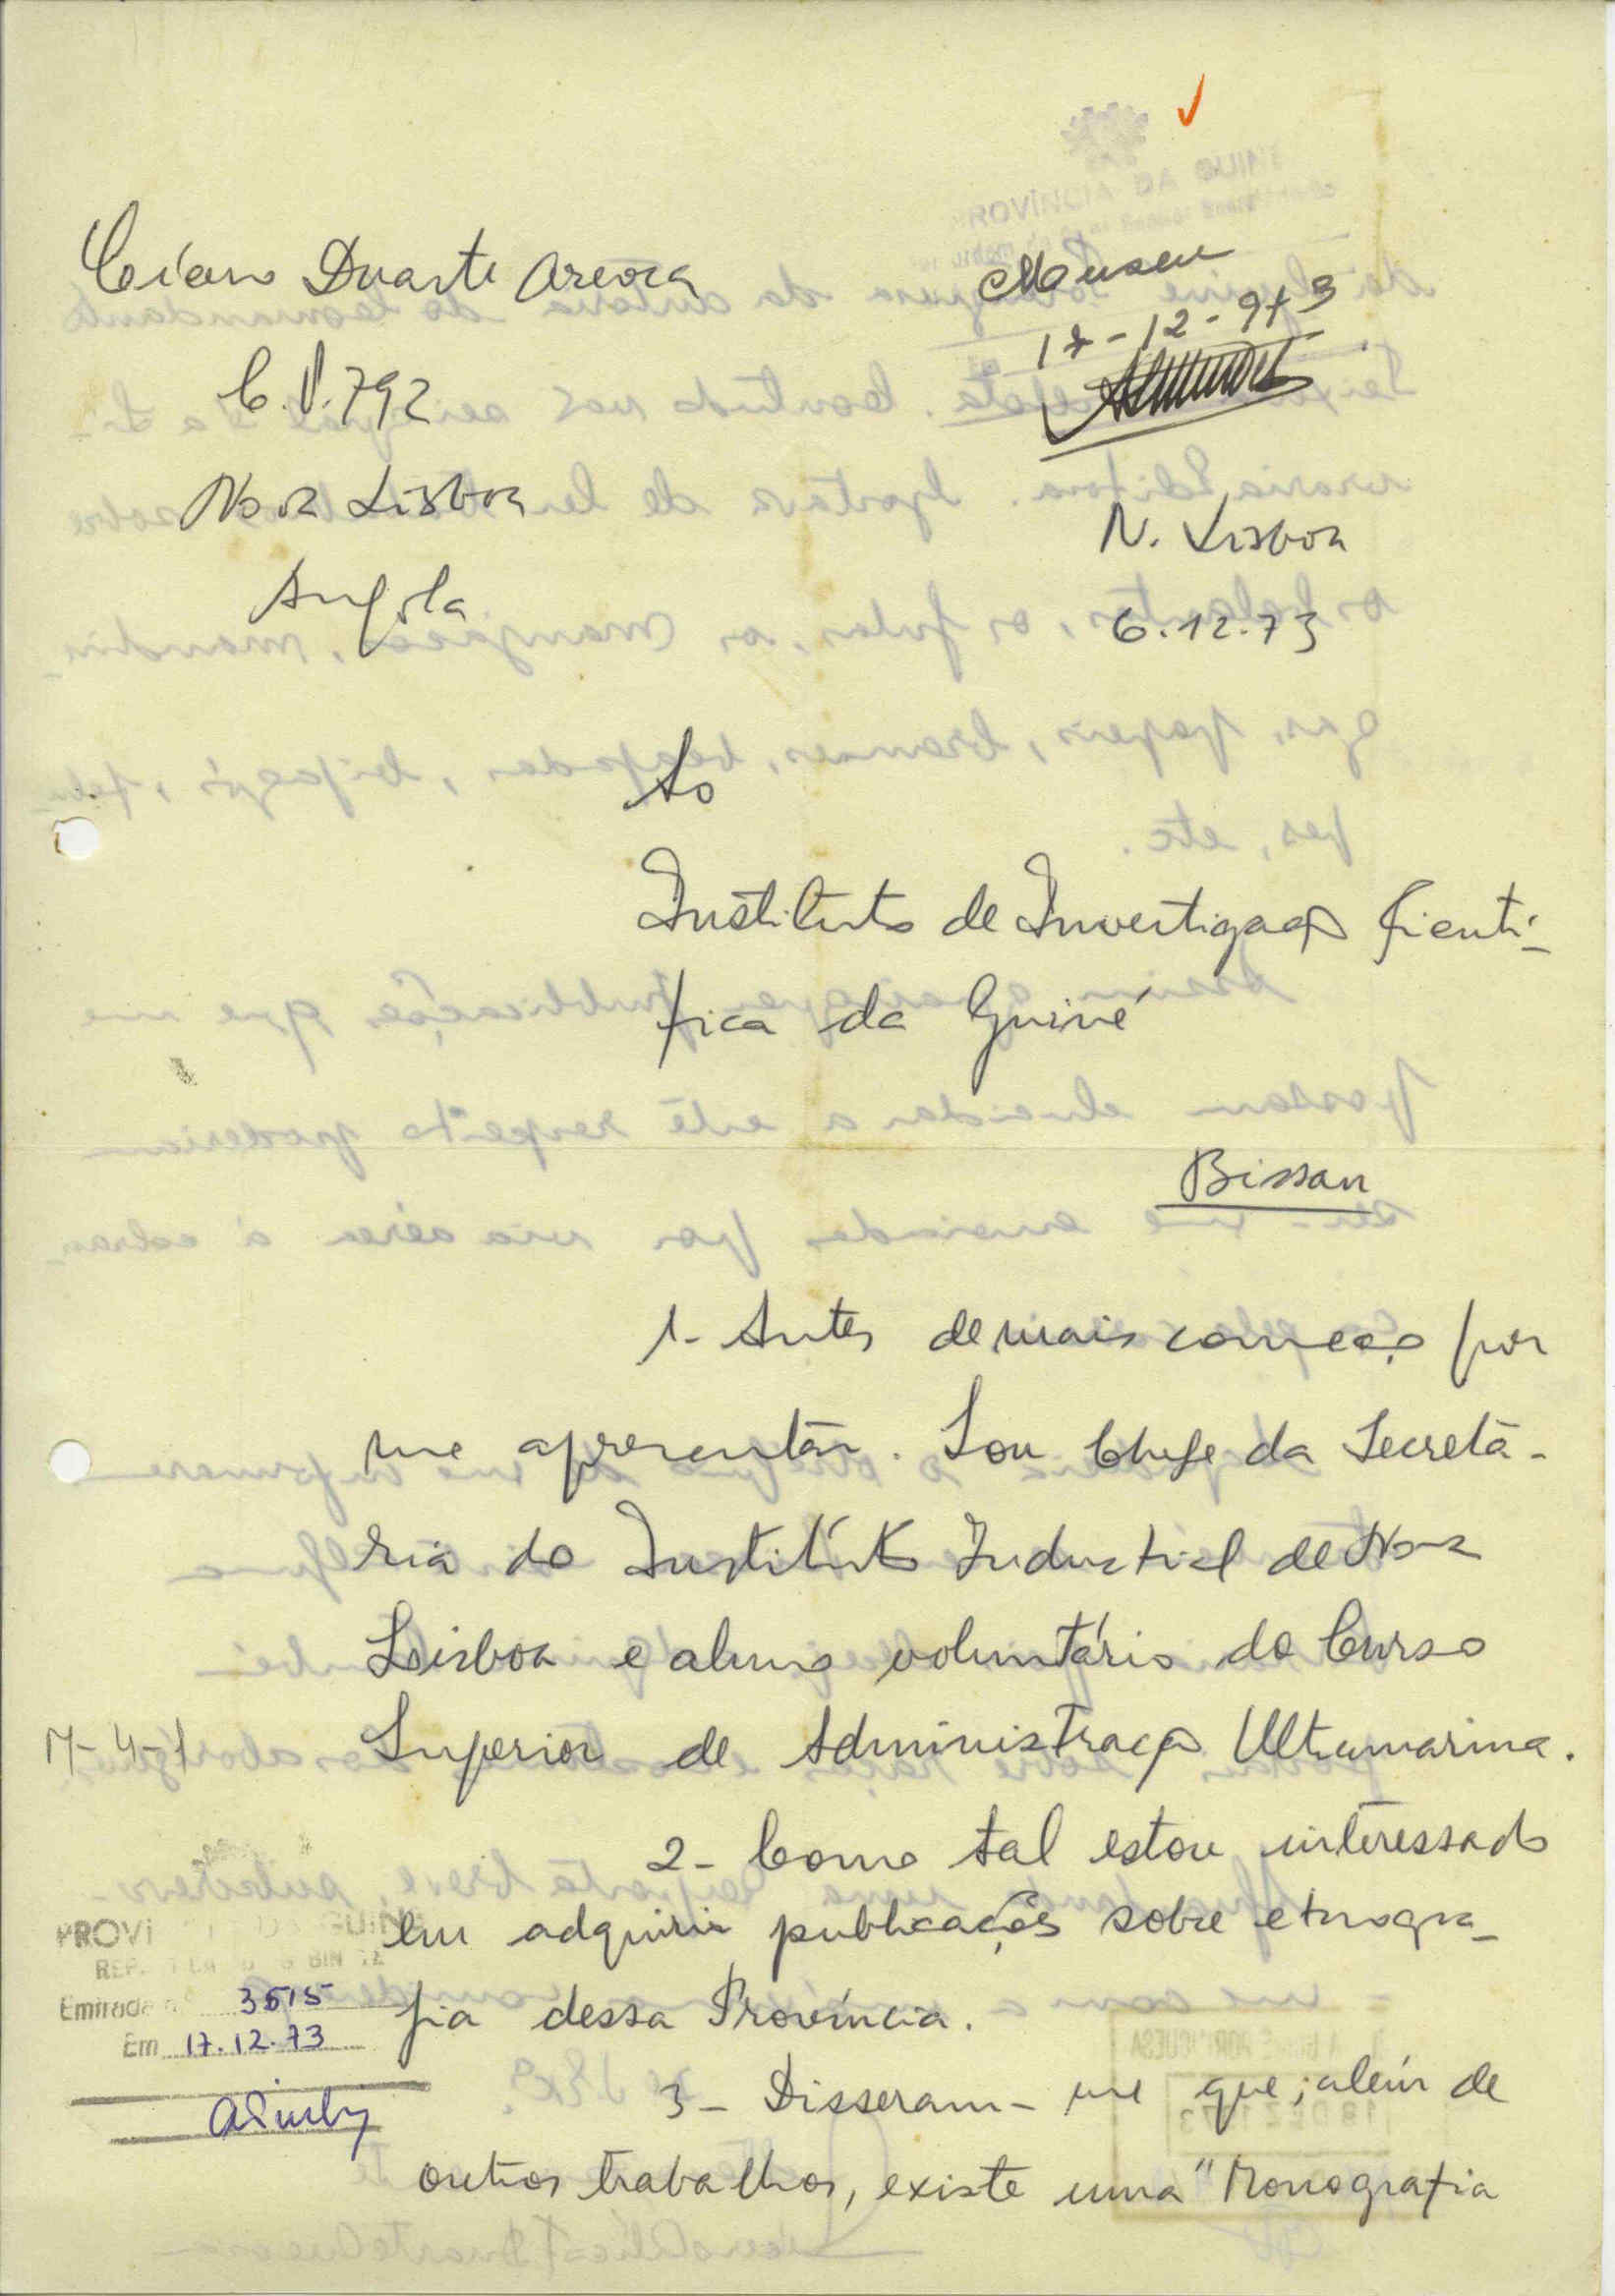 Duarte
C.P. 792
Nova Lisboa
Angola
Museu
17-12-973
N. Lisboa
6.12.73
Ao
Instituto de Investigação Cientí-
fica da Guiné
Bissau
1- Antes de mais começo por
me apresentar. Sou Chefe da Secretá-
ria do Instituto Industrial de Nova
Lisboa e aluno voluntário do Curso
M-4-1
Superior de Administração Ultramarina.
2- Como tal estou interessado
em adquirir publicações sobre etnogra-
fia dessa Província.
3- Disseram-me que, além de
outros trabalhos, existe uma "Monografia
PROVÍNCIA DA GUINÉ
Entrada nº 3515
Em 17.12.73